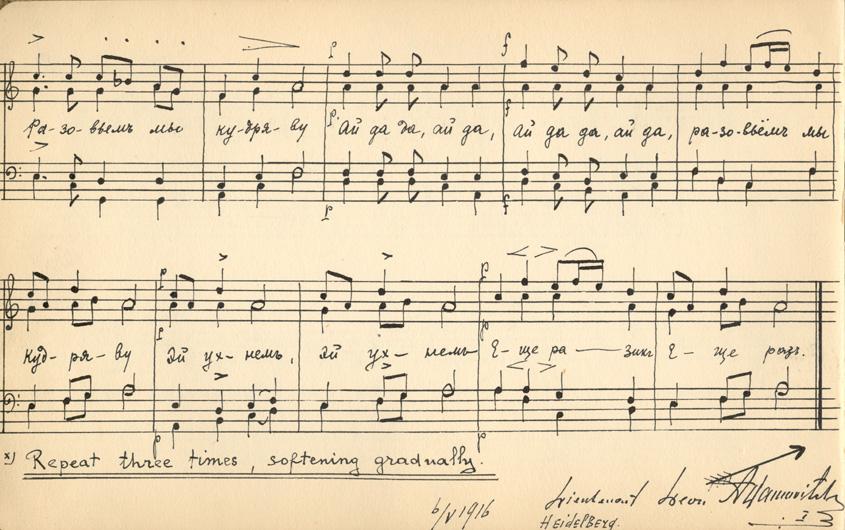 Ра-зо-вьемъ мы ку-дря-ву Ай да да, ай да, Ай да да, ай да, ра-зо-вьёмъ мы
Куд-ря-ву Эй ух-немъ, Эй ух-немъ Е-ще ра-зикъ Е-ще разъ.
x) Repeat three times, softening gradually.
6/V 1916
Heidelberg.